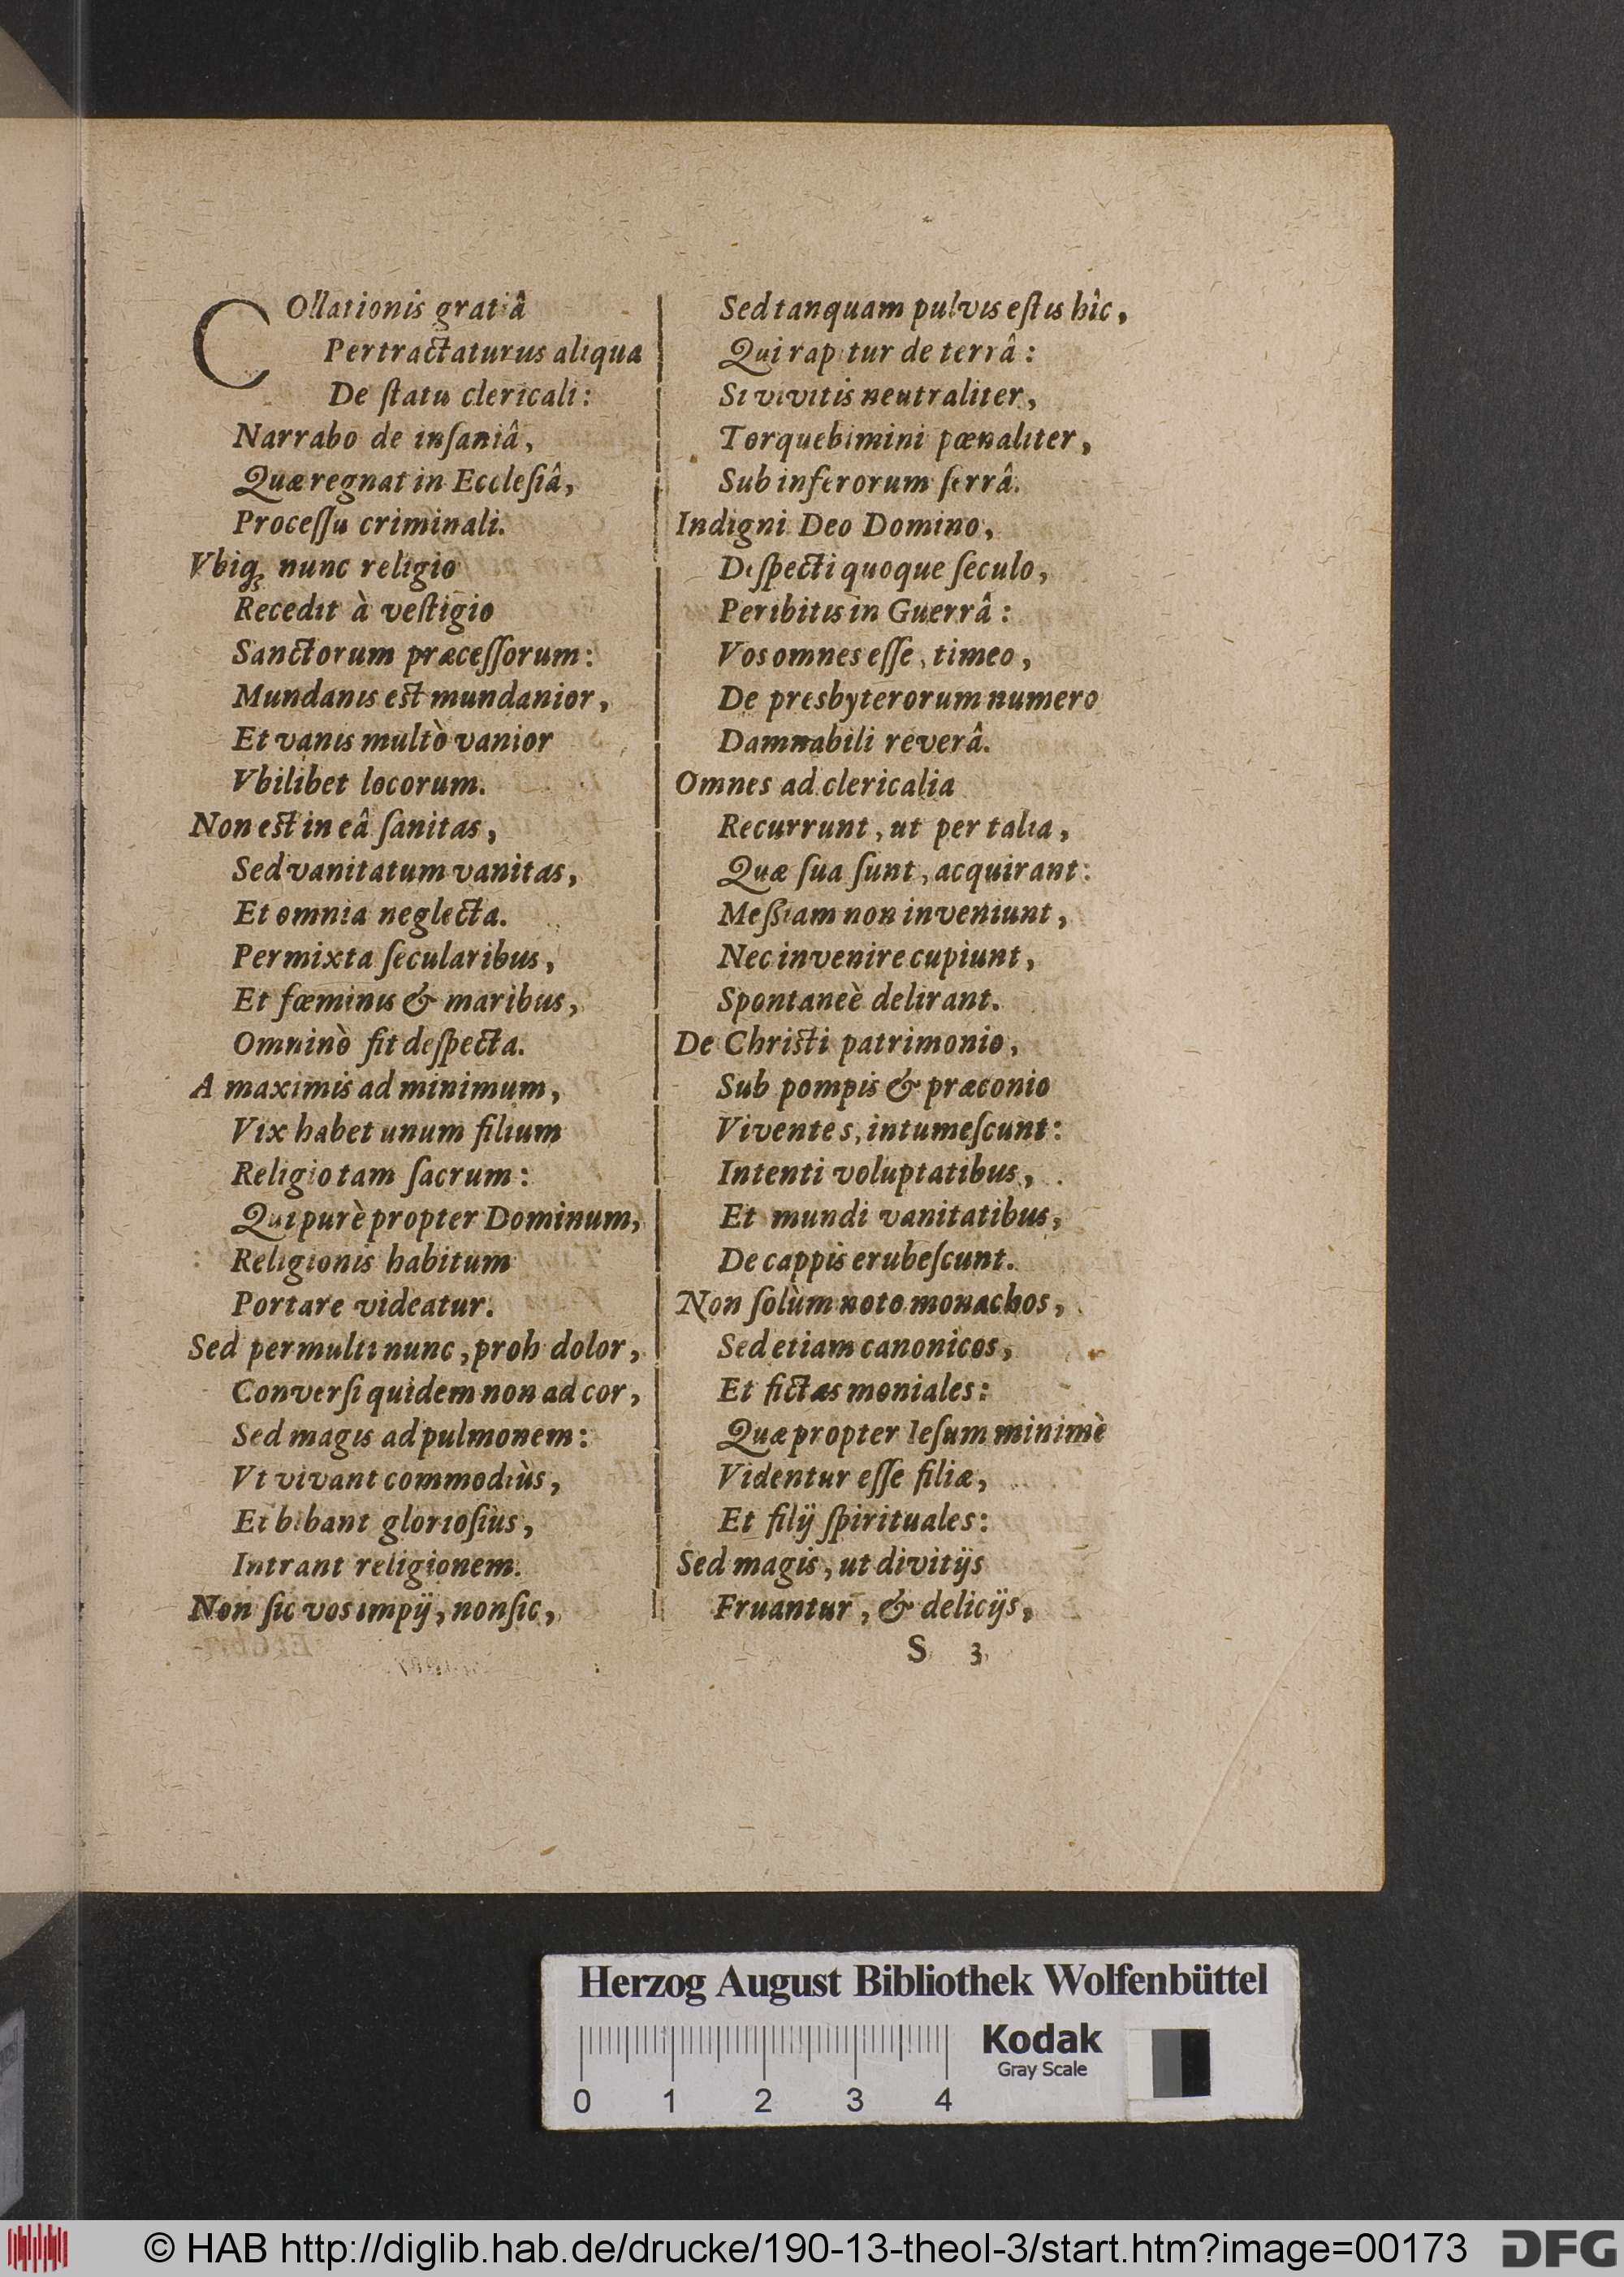 COllationis gratiâ
Pertractaturus aliqua
De ſtatu clericali:
Narrabo de inſaniâ,
Quæ regnat in Eccleſiâ,
Proceſſu criminali.
Vbiq; nunc religio
Recedit à veſtigio
Sanctorum præceſſorum:
Mundanis est mundanior,
Et vanis multò vanior
Vbilibet locorum.
Non est in eâ ſanitas,
Sed vanitatum vanitas,
Et omnia neglecta.
Permixta ſecularibus,
Et fœminis & maribus,
Omninò fit deſpecta.
A maximis ad minimum,
Vix habet unum filium
Religio tam ſacrum:
Qui purè propter Dominum,
Religionis habitum
Portare videatur.
Sed permulti nunc, proh dolor,
Converſi quidem non ad cor,
Sed magis ad pulmonem:
Vt vivant commodiùs,
Et bibant glorioſiùs,
Intrant religionem.
Non ſic vos impij, non ſic,
Sed tanquam pulvis eſtis hîc,
Qui rapitur de terrâ:
Si vivitis neutraliter,
Torquebimini pœnaliter,
Sub inferorum ſerrâ.
Indigni Deo Domino,
Deſpecti quoque ſeculo,
Peribitis in Guerrâ:
Vos omnes eſſe, timeo,
De presbyterorum numero
Damnabili reverâ.
Omnes ad clericalia
Recurrunt, ut per talia,
Quæ ſua ſunt, acquirant:
Meßiam non inveniunt,
Nec invenire cupiunt,
Spontaneè delirant.
De Christi patrimonio,
Sub pompis & præconio
Viventes, intumeſcunt:
Intenti voluptatibus,
Et mundi vanitatibus,
De cappis erubeſcunt.
Non ſolùm noto monachos,
Sed etiam canonicos,
Et fictas moniales:
Quæ propter Ieſum minimè
Videntur eſſe filiæ,
Et filij ſpirituales:
Sed magis, ut divitijs
Fruantur, & delicijs,
S 3
Herzog August Bibliothek Wolfenbüttel
Kodak
Gray Scale
0 1 2 3 4
© HAB http://diglib.hab.de/drucke/190-13-theol-3/start.htm?image=00173
DFG